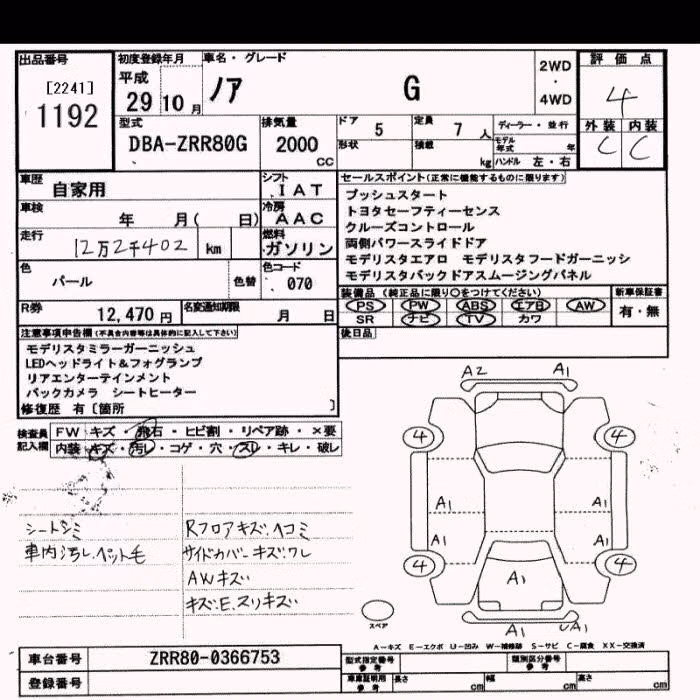 出品番号
[2241]
1192
初度登録年月
平成
29 10 月
車名・グレード
ノア G
2WD
・
4WD
評価点
4
外装 内装
C C
型式
DBA-ZRR80G
排気量
2000 cc
ドア 5
形状
定員 7 人
積載 kg
ディーラー・並行
モデル年式 年
ハンドル 左・右
車歴 自家用
シフト IAT
車検 年 月( 日)
冷房 AAC
走行 12万2千402 km
燃料 ガソリン
色 パール 色替
色コード 070
R券 12,470 円
名変通知期限 月 日
セールスポイント(正常に機能するものに限ります)
プッシュスタート
トヨタセーフティーセンス
クルーズコントロール
両側パワースライドドア
モデリスタエアロ モデリスタフードガーニッシ
モデリスタバックドアスムージングパネル
装備品(純正品に限り〇をつけてください)
PS PW ABS エアB AW
SR ナビ TV カワ
新車保証書
有・無
後日品
注意事項申告欄(不具合内容等は具体的に記入して下さい)
モデリスタミラーガーニッシュ
LEDヘッドライト&フォグランプ
リアエンターテインメント
バックカメラ シートヒーター
修復歴 有〔箇所 〕
検査員記入欄
FW キズ・飛石・ヒビ割・リペア跡・×要
内装 キズ・汚レ・コゲ・穴・スレ・キレ・破レ
シートシミ
車内汚レ.ペット毛
Rフロアキズ.ヘコミ
サイドカバーキズ.ワレ
AWキズ
キズE.スリキズ
A2 A1
4 4
A1 A1
A1 A1
4 4
A1
A1 UA1
スペア
A-キズ E-エクボ U-凹み W-補修跡 S-サビ C-腐食 XX-交換済
車台番号 ZRR80-0366753
登録番号
型式指定番号 参考
類別区分番号 参考
車庫証明用 参考 長さ cm 幅 cm 高さ cm